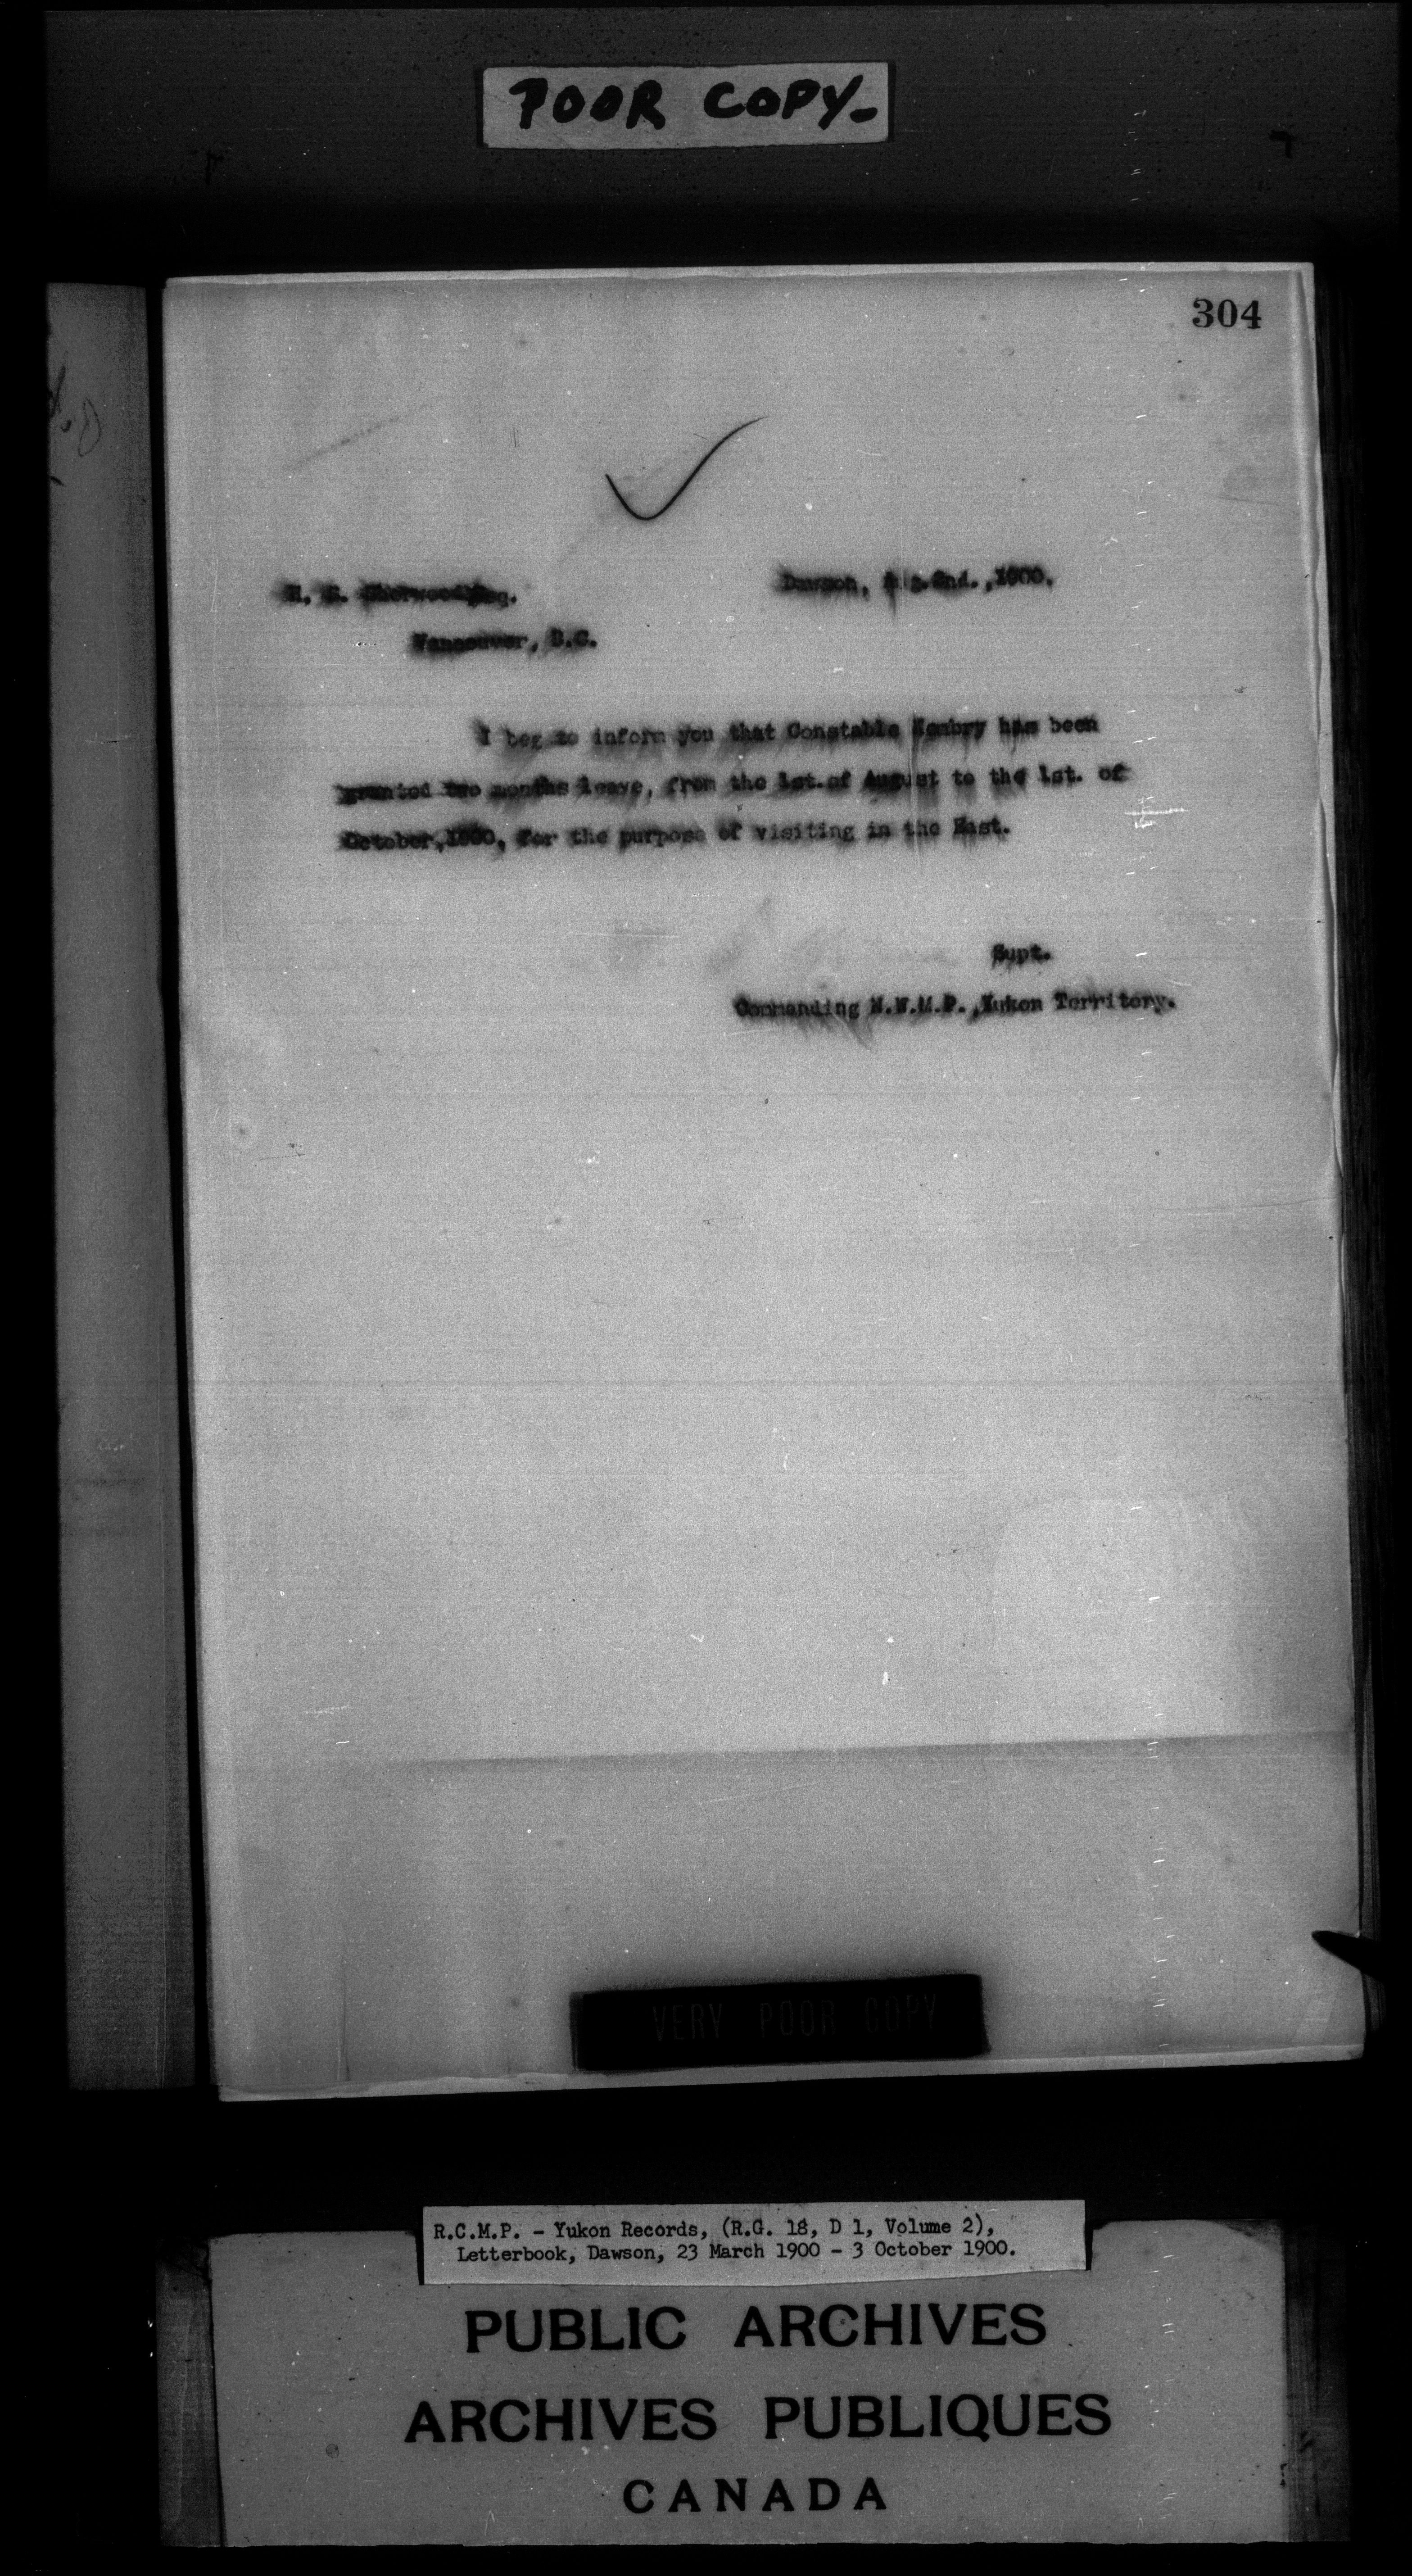 POOR COPY-
304
Dawson, 2nd.,1900.
Sherwood Esq.
Vancouver, B.C.
I beg to inform you that Constable has been
granted two months leave, from the 1st.of August to the 1st. of
October,1900, for the purpose of visiting in the East.
Supt.
Commanding N.W.M.P.,Yukon Territory.
VERY POOR COPY
R.C.M.P. - Yukon Records, (R.G. 18, D 1, Volume 2),
Letterbook, Dawson, 23 March 1900 - 3 October 1900.
PUBLIC ARCHIVES
ARCHIVES PUBLIQUES
CANADA